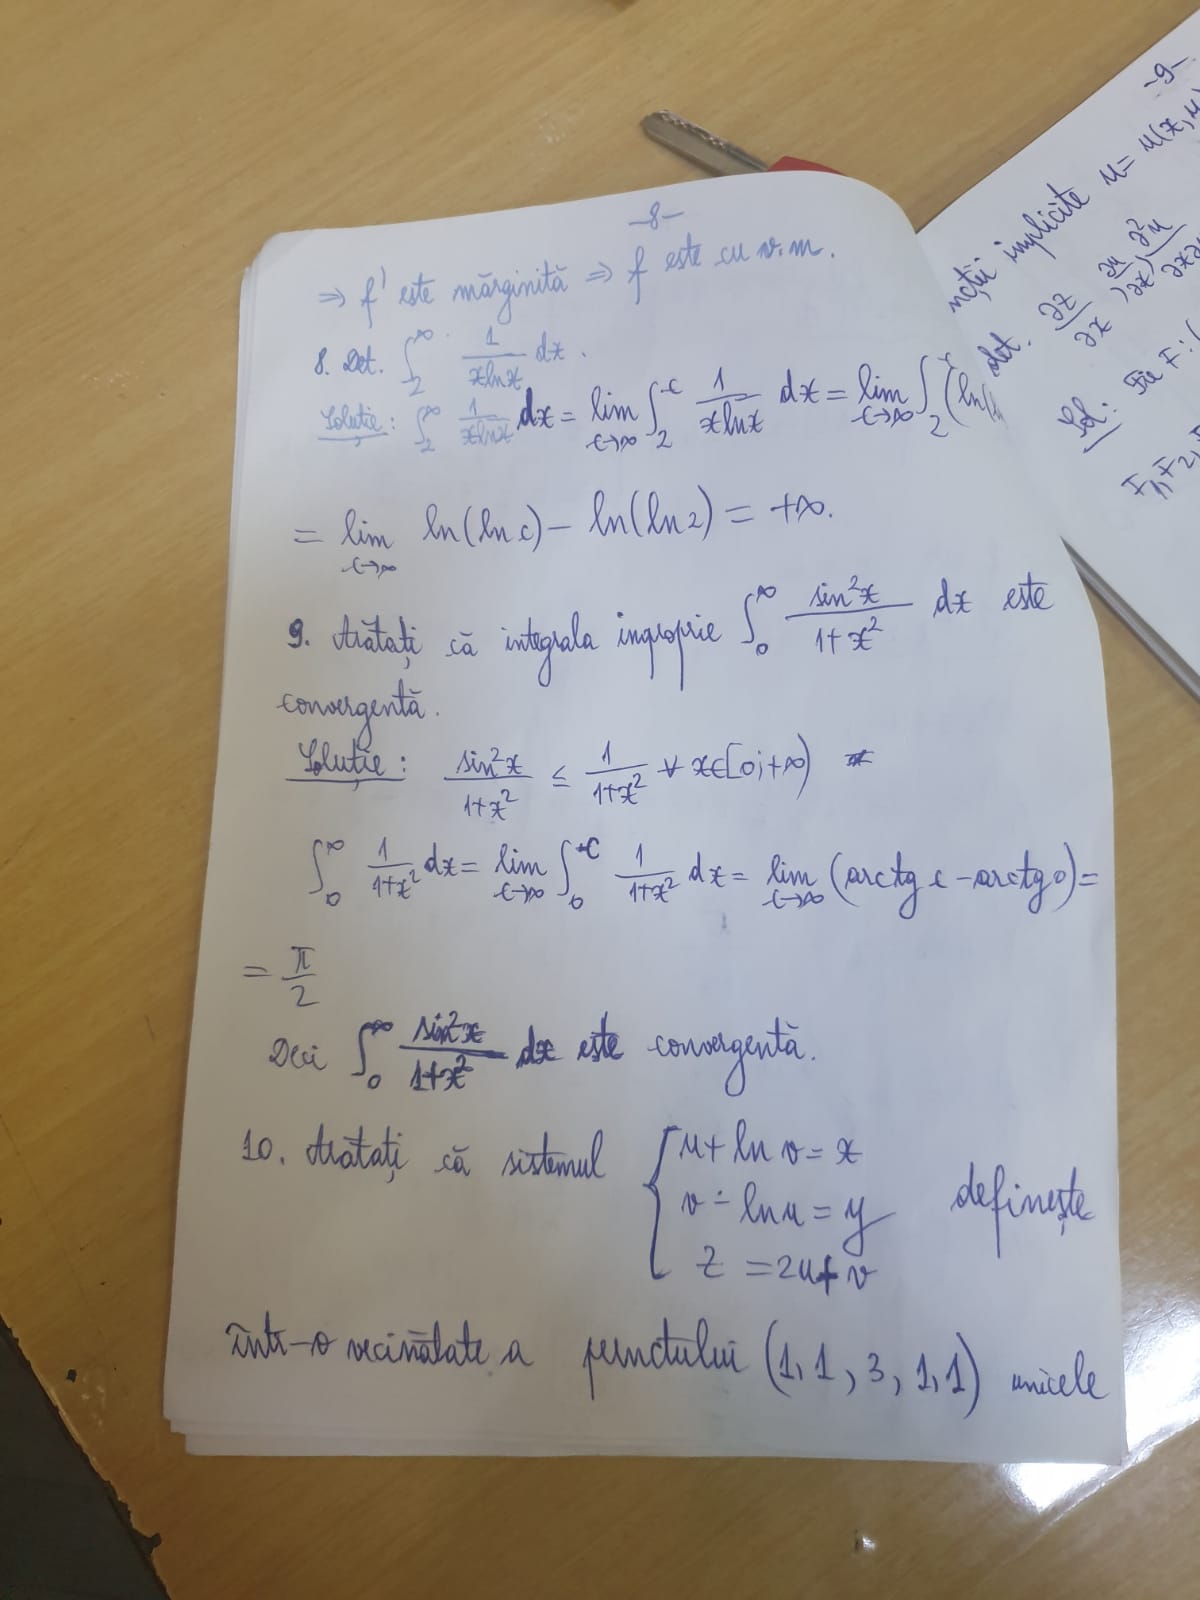 -8-
⇒ f' este mărginită ⇒ f este cu v.m.
8. Det. ∫_2^∞ 1/(x ln x) dx.
Soluție: ∫_2^∞ 1/(x ln x) dx = lim_{c→∞} ∫_2^c 1/(x ln x) dx = lim_{c→∞} ∫_2 (ln(
= lim_{c→∞} ln(ln c) - ln(ln 2) = +∞.
9. Arătați că integrala improprie ∫_0^∞ sin²x/(1+x²) dx este
convergentă.
Soluție: sin²x/(1+x²) ≤ 1/(1+x²) ∀ x∈[0;+∞)
∫_0^∞ 1/(1+x²) dx = lim_{c→∞} ∫_0^c 1/(1+x²) dx = lim_{c→∞} (arctg c - arctg 0) =
= π/2
Deci ∫_0^∞ sin²x/(1+x²) dx este convergentă.
10. Arătați că sistemul { u + ln v = x
v - ln u = y definește
z = 2u + v
într-o vecinătate a punctului (1, 1, 3, 1, 1) unicele
-9-
implicite u = u(x,
det. ∂z/∂x, ∂u/∂x, ∂²u/
Sol: Fie F: (
F1, F2,